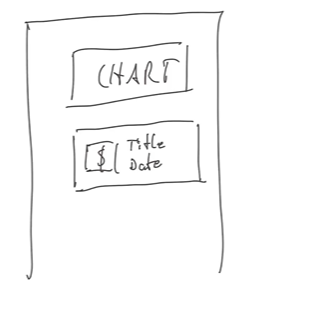 CHART
$
Title
Date